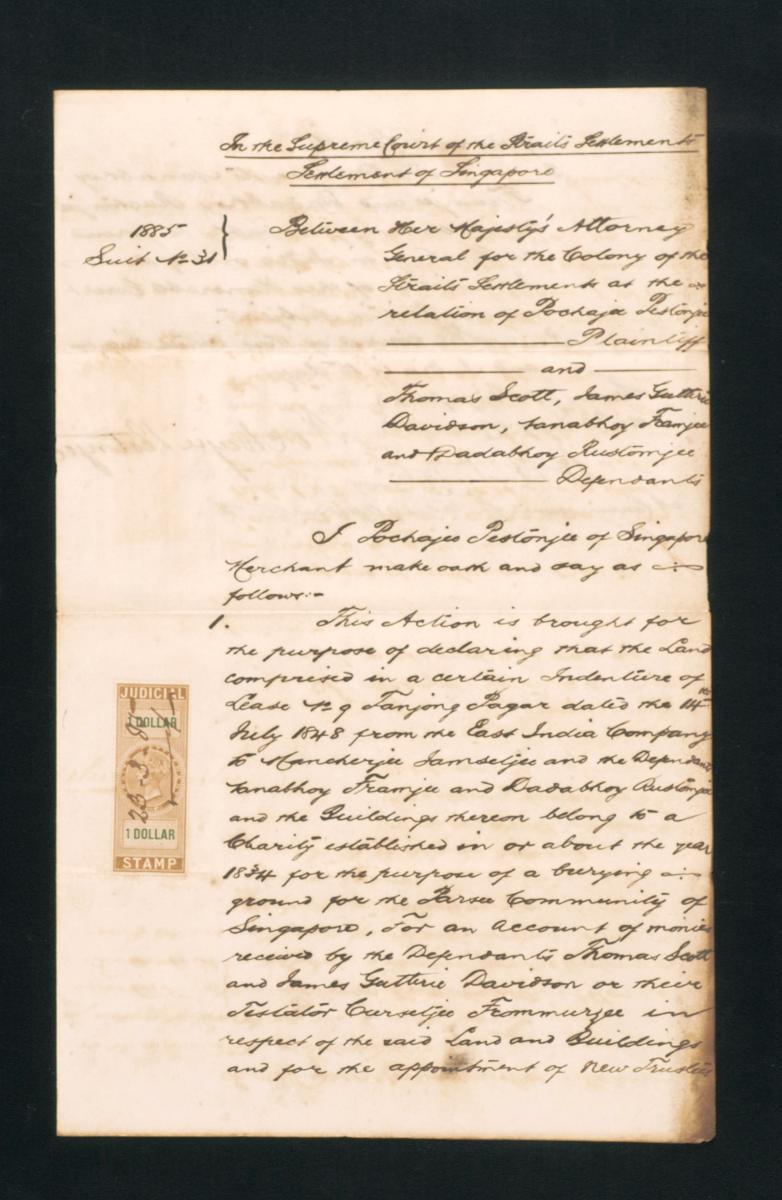 In the Supreme Court of the Straits Settlements
Settlement of Singapore
1885
Suit No 31
Between Her Majesty's Attorney
General for the Colony of the
Straits Settlements at the
relation of Pochajee Pestonjee
Plaintiff
and
Thomas Scott, James Guthrie
Davidson, Nanabhoy Framjee
and Dadabhoy Rustomjee
Defendants
I Pochajee Pestonjee of Singapore
Merchant make oath and say as
follows:-
1. This Action is brought for
the purpose of declaring that the Land
comprised in a certain Indenture of
Lease No 9 Tanjong Pagar dated the 14th
July 1848 from the East India Company
to Mancherjee Jamsetjee and the Defendants
Nanabhoy Framjee and Dadabhoy Rustomjee
and the Buildings thereon belong to a
Charity established in or about the year
1834 for the purpose of a burying
ground for the Parsee Community of
Singapore, For an account of monies
received by the Defendants Thomas Scott
and James Guthrie Davidson or their
Testator Cursetjee Frommurzee in
respect of the said Land and Buildings
and for the appointment of New Trustees
JUDICIAL
1 DOLLAR
23-3-85
1 DOLLAR
STAMP